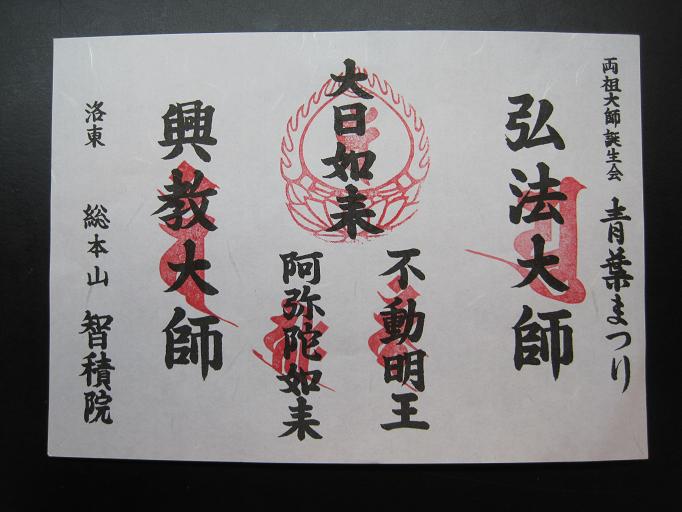 両祖大師誕生会 青葉まつり
弘法大師
不動明王
大日如来
阿弥陀如来
興教大師
洛東 総本山 智積院